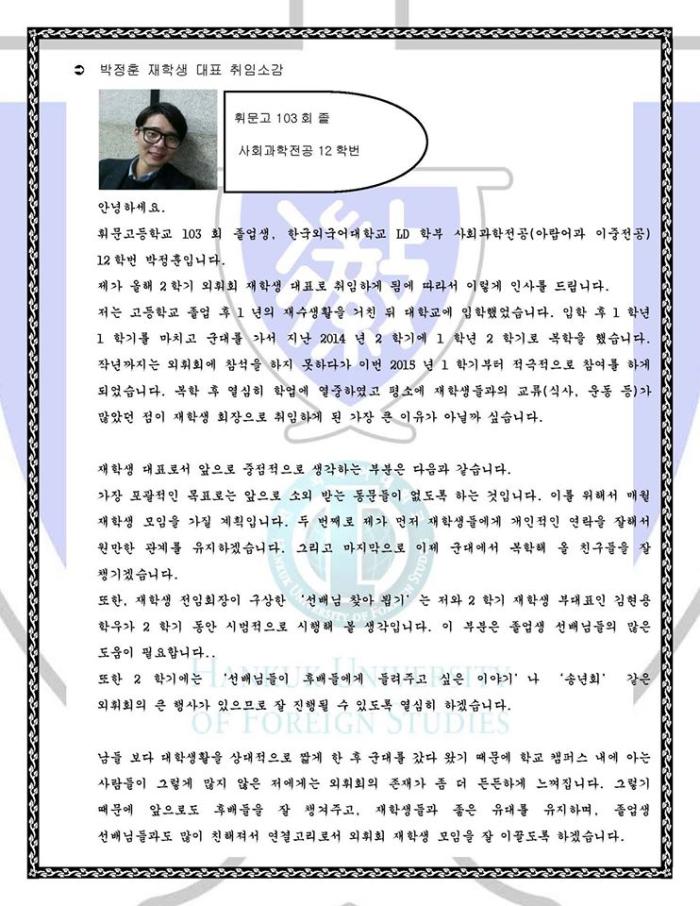 ➲ 박정훈 재학생 대표 취임소감
휘문고 103 회 졸
사회과학전공 12 학번
안녕하세요.
휘문고등학교 103 회 졸업생, 한국외국어대학교 LD 학부 사회과학전공(아랍어과 이중전공)
12 학번 박정훈입니다.
제가 올해 2 학기 외휘회 재학생 대표로 취임하게 됨에 따라서 이렇게 인사를 드립니다.
저는 고등학교 졸업 후 1 년의 재수생활을 거친 뒤 대학교에 입학했었습니다. 입학 후 1 학년
1 학기를 마치고 군대를 가서 지난 2014 년 2 학기에 1 학년 2 학기로 복학을 했습니다.
작년까지는 외휘회에 참석을 하지 못하다가 이번 2015 년 1 학기부터 적극적으로 참여를 하게
되었습니다. 복학 후 열심히 학업에 열중하였고 평소에 재학생들과의 교류(식사, 운동 등)가
많았던 점이 재학생 회장으로 취임하게 된 가장 큰 이유가 아닐까 싶습니다.
재학생 대표로서 앞으로 중점적으로 생각하는 부분은 다음과 같습니다.
가장 포괄적인 목표로는 앞으로 소외 받는 동문들이 없도록 하는 것입니다. 이를 위해서 매월
재학생 모임을 가질 계획입니다. 두 번째로 제가 먼저 재학생들에게 개인적인 연락을 잘해서
원만한 관계를 유지하겠습니다. 그리고 마지막으로 이제 군대에서 복학해 올 친구들을 잘
챙기겠습니다.
또한, 재학생 전임회장이 구상한 ‘선배님 찾아 뵙기’ 는 저와 2 학기 재학생 부대표인 김현용
학우가 2 학기 동안 시범적으로 시행해 볼 생각입니다. 이 부분은 졸업생 선배님들의 많은
도움이 필요합니다..
또한 2 학기에는 ‘선배님들이 후배들에게 들려주고 싶은 이야기’ 나 ‘송년회’ 같은
외휘회의 큰 행사가 있으므로 잘 진행될 수 있도록 열심히 하겠습니다.
HANKUK UNIVERSITY
OF FOREIGN STUDIES
남들 보다 대학생활을 상대적으로 짧게 한 후 군대를 갔다 왔기 때문에 학교 캠퍼스 내에 아는
사람들이 그렇게 많지 않은 저에게는 외휘회의 존재가 좀 더 든든하게 느껴집니다. 그렇기
때문에 앞으로도 후배들을 잘 챙겨주고, 재학생들과 좋은 유대를 유지하며, 졸업생
선배님들과도 많이 친해져서 연결고리로서 외휘회 재학생 모임을 잘 이끌도록 하겠습니다.